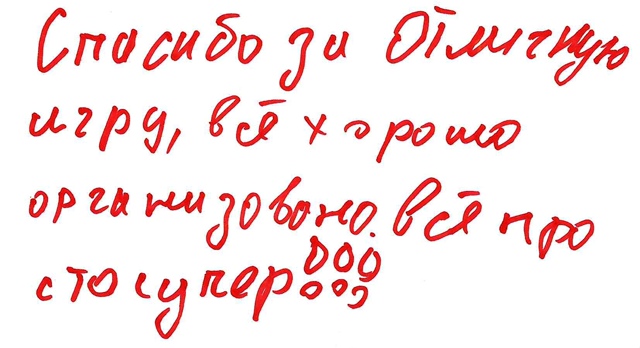 Спасибо за Отличную
игру, всё хорошо
организовано. Всё про
сто супер!!!